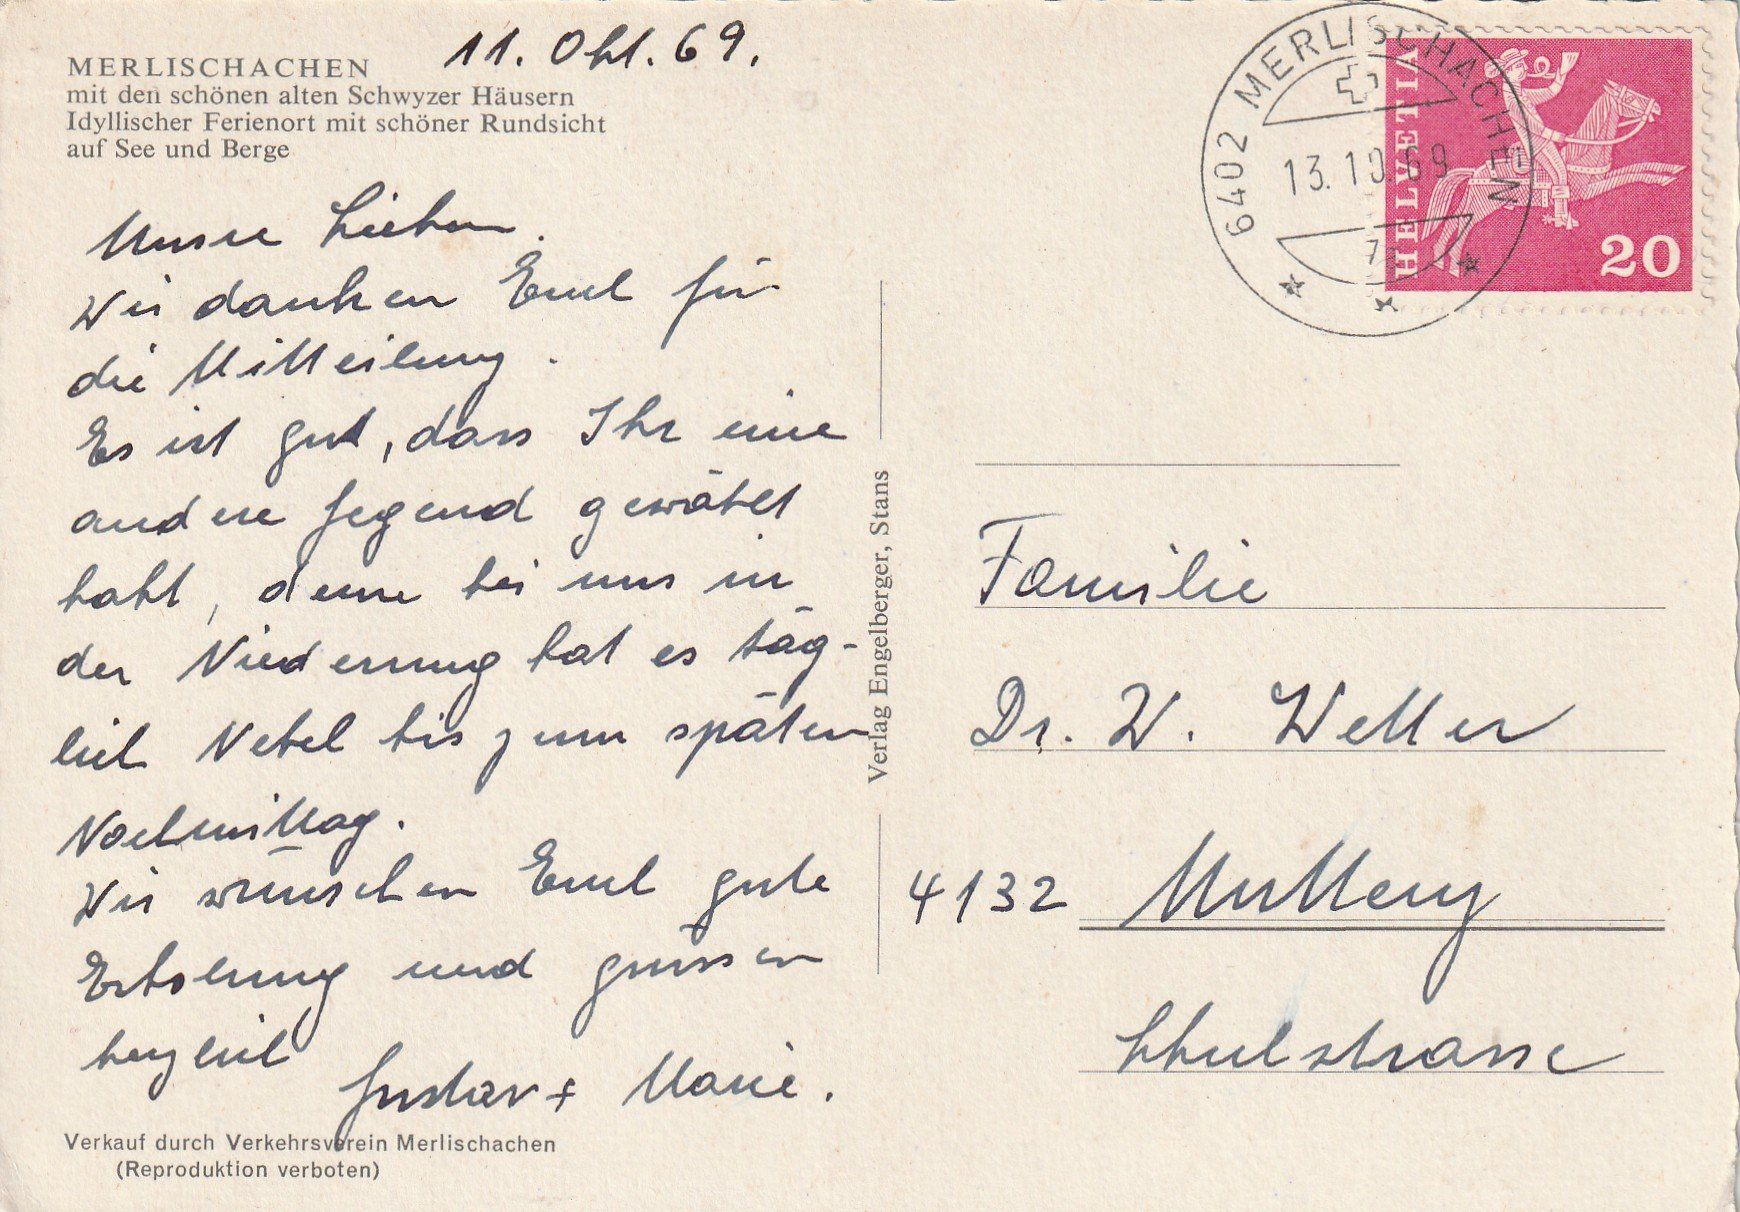 MERLISCHACHEN
mit den schönen alten Schwyzer Häusern
Idyllischer Ferienort mit schöner Rundsicht
auf See und Berge
11. Okt. 69.
Unsere Lieben.
Wir danken Euch für
die Mitteilung.
Es ist gut, dass Ihr eine
andere Gegend gewählt
habt, denn bei uns in
der Niederung hat es täg-
lich Nebel bis zum späten
Nachmittag.
Wir wünschen Euch gute
Erholung und grüssen
herzlich
Gustav + Marie.
Verkauf durch Verkehrsverein Merlischachen
(Reproduktion verboten)
Verlag Engelberger, Stans
6402 MERLISCHACHEN
13.10.69
HELVETIA
20
Familie
Dr. W. Weller
4132 Muttenz